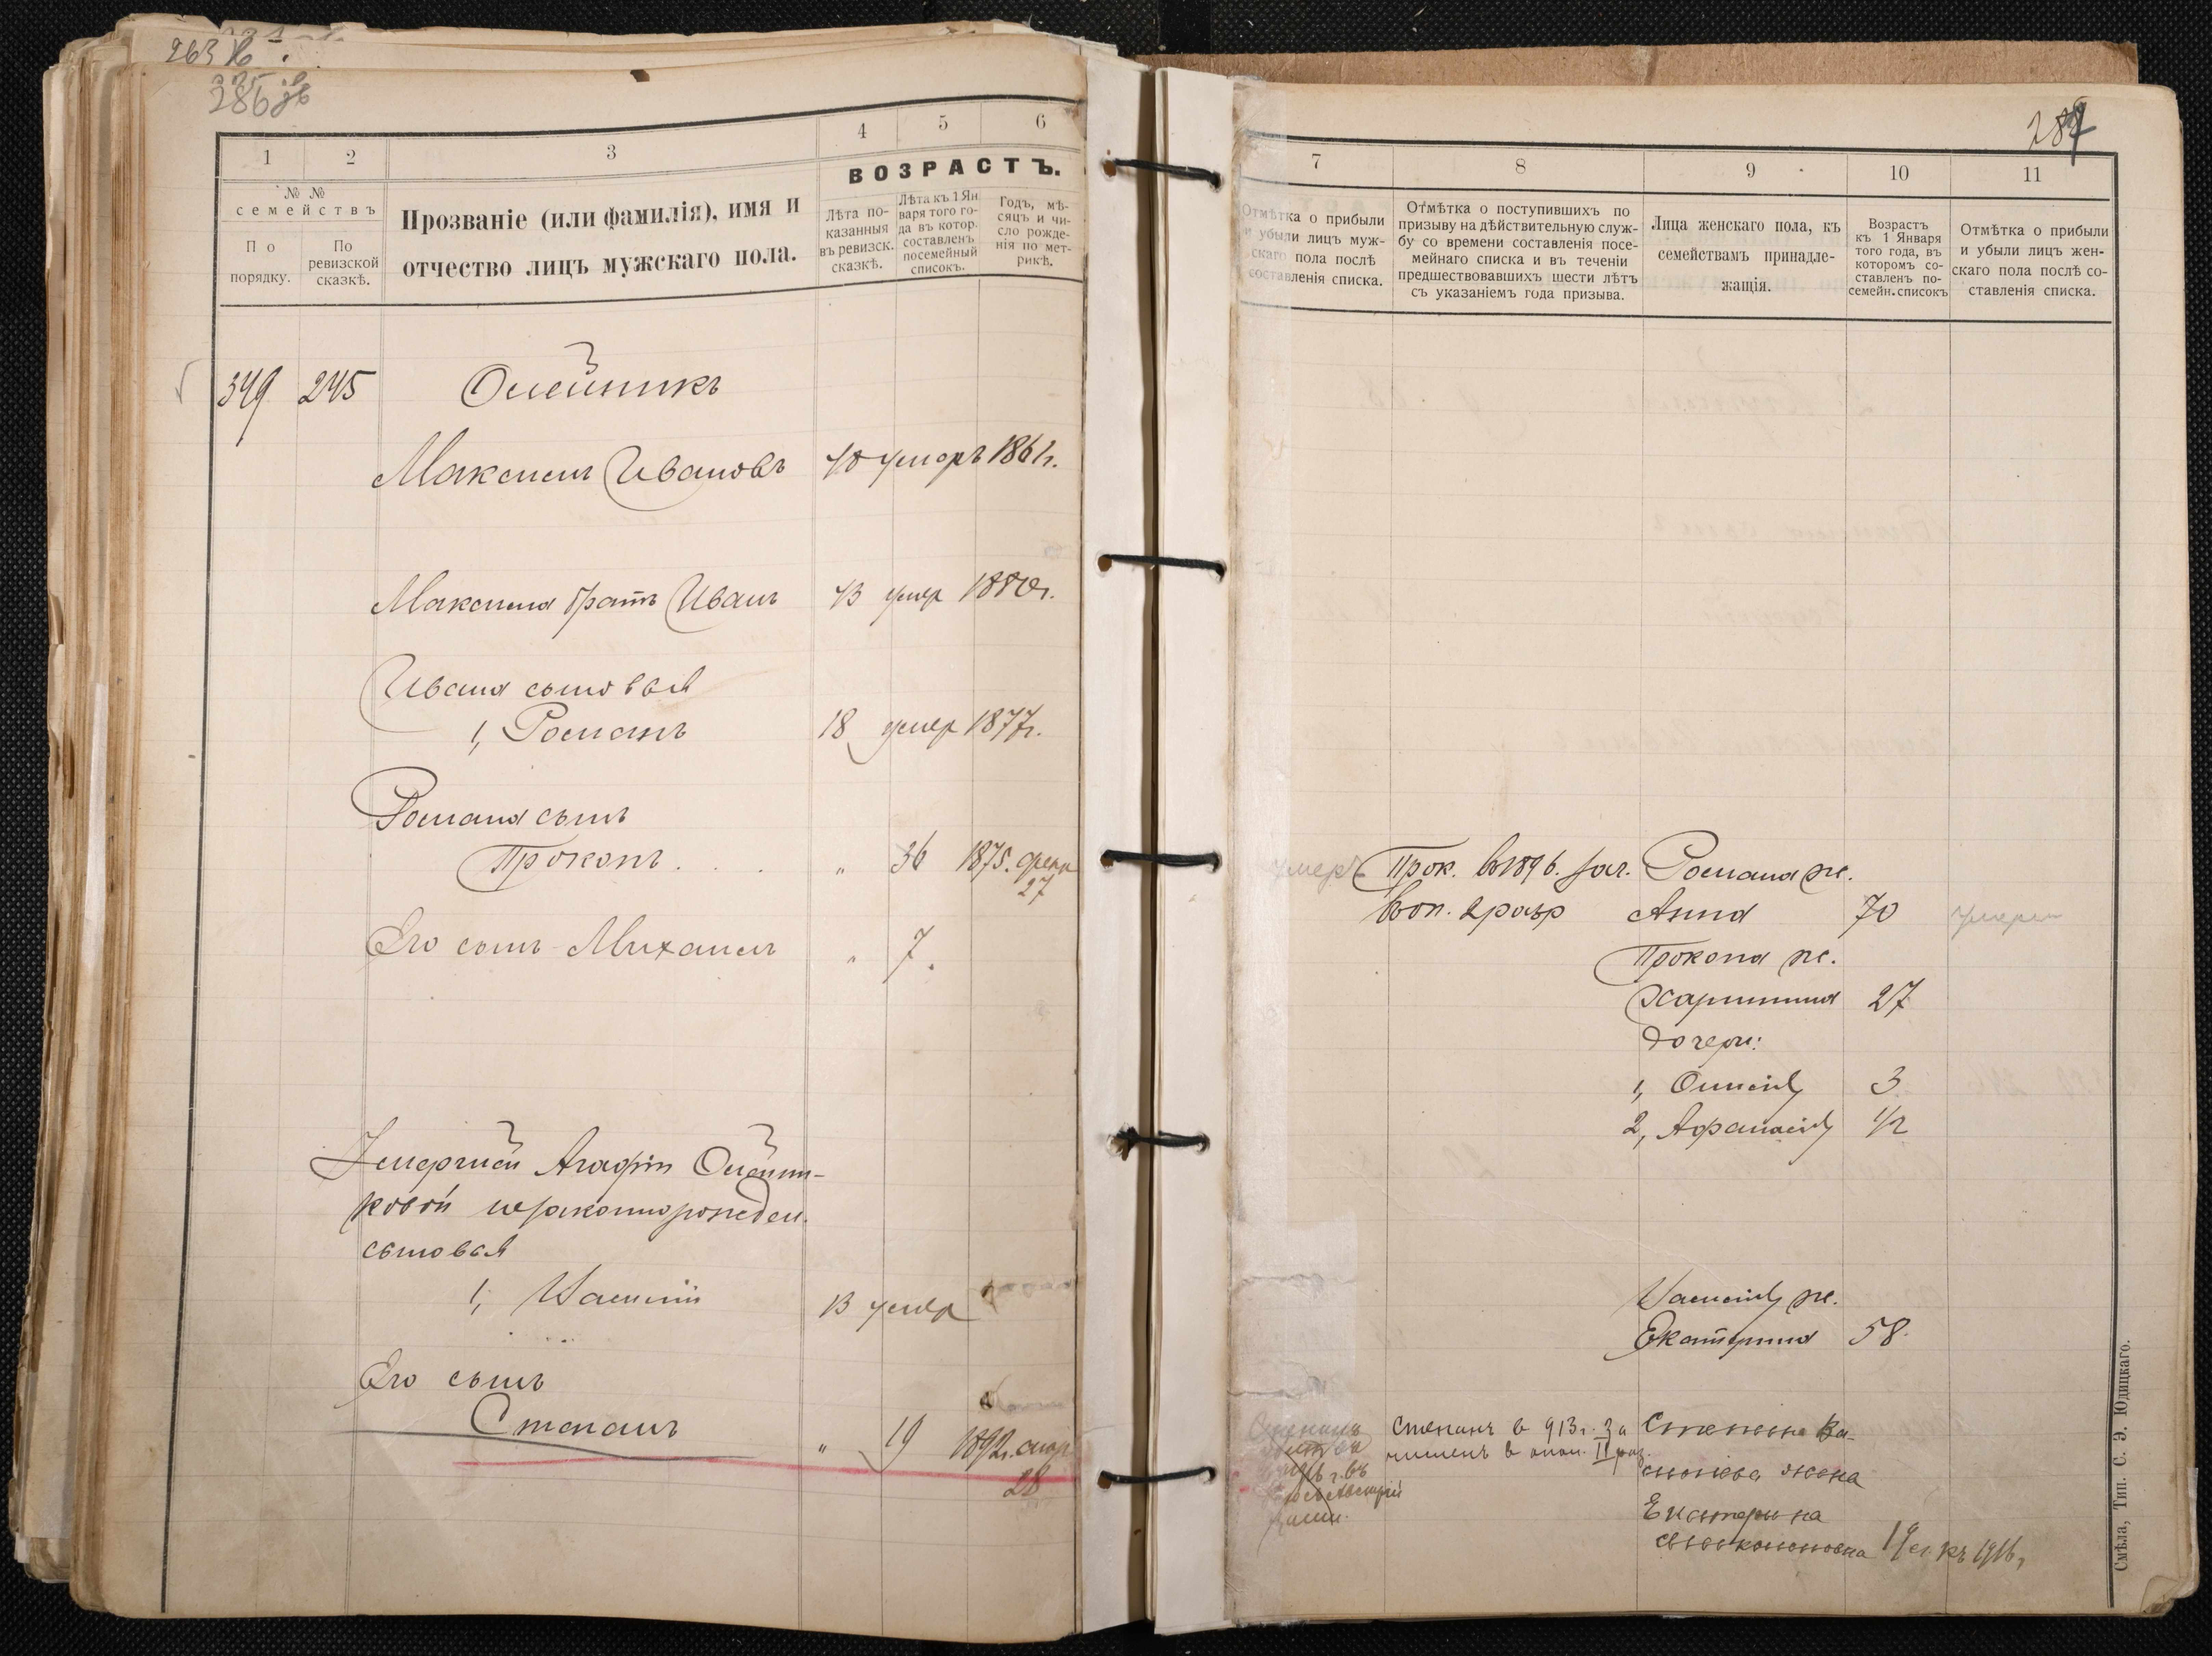 263
286
1
2
3
4
5
6
ВОЗРАСТЪ.
№ №
семействъ
По
порядку.
По
ревизской
сказкѣ.
Прозваніе (или фамилія), имя и
отчество лицъ мужскаго пола.
Лѣта по-
казанныя
въ ревизск.
сказкѣ.
Лѣта къ 1 Ян
варя того го-
да въ котор.
составленъ
посемейный
списокъ.
Годъ, мѣ-
сяцъ и чи-
сло рожде-
нія по мет-
рикѣ.
349 245 Олейникъ
Максим Ивановъ 40 умеръ 1861г.
Максима братъ Иванъ 43 умер
Ивана сыновья
1, Романъ 18 умер 1877г.
Романа сынъ
Прокопъ . . . " 36 1875.
27
Его сынъ Михаилъ " 7.
Агафіи Олейни-
ковой незаконнорожден.
сыновья
1, Василій 13 умер
Его сынъ
Степанъ " 19 1892г.
28
7
8
9
10
11
Отмѣтка о прибыли
и убыли лицъ муж-
скаго пола послѣ
составленія списка.
Отмѣтка о поступившихъ по
призыву на дѣйствительную служ-
бу со времени составленія посе-
мейнаго списка и въ теченіи
предшествовавшихъ шести лѣтъ
съ указаніемъ года призыва.
Лица женскаго пола, къ
семействамъ принадле-
жащія.
Возрастъ
къ 1 Января
того года, въ
которомъ со-
ставленъ по-
семейн. списокъ
Отмѣтка о прибыли
и убыли лиц жен-
скаго пола послѣ со-
ставленія списка.
умеръ Прок. в 1896. зач. Романа ж.
в оп. 2 разр Анна 70 умерла
Прокопа ж.
Харитина 27
дочери:
1, 3
2, Афанасія 1/2
Василія ж.
Екатерина 58.
Степанъ в 913г. за
численъ в опол. II раз.
Степана Ва-
сильева жена
Екатерина
19 л. къ 1916г
Смѣла, Тип. С. Э. Юдицкаго.